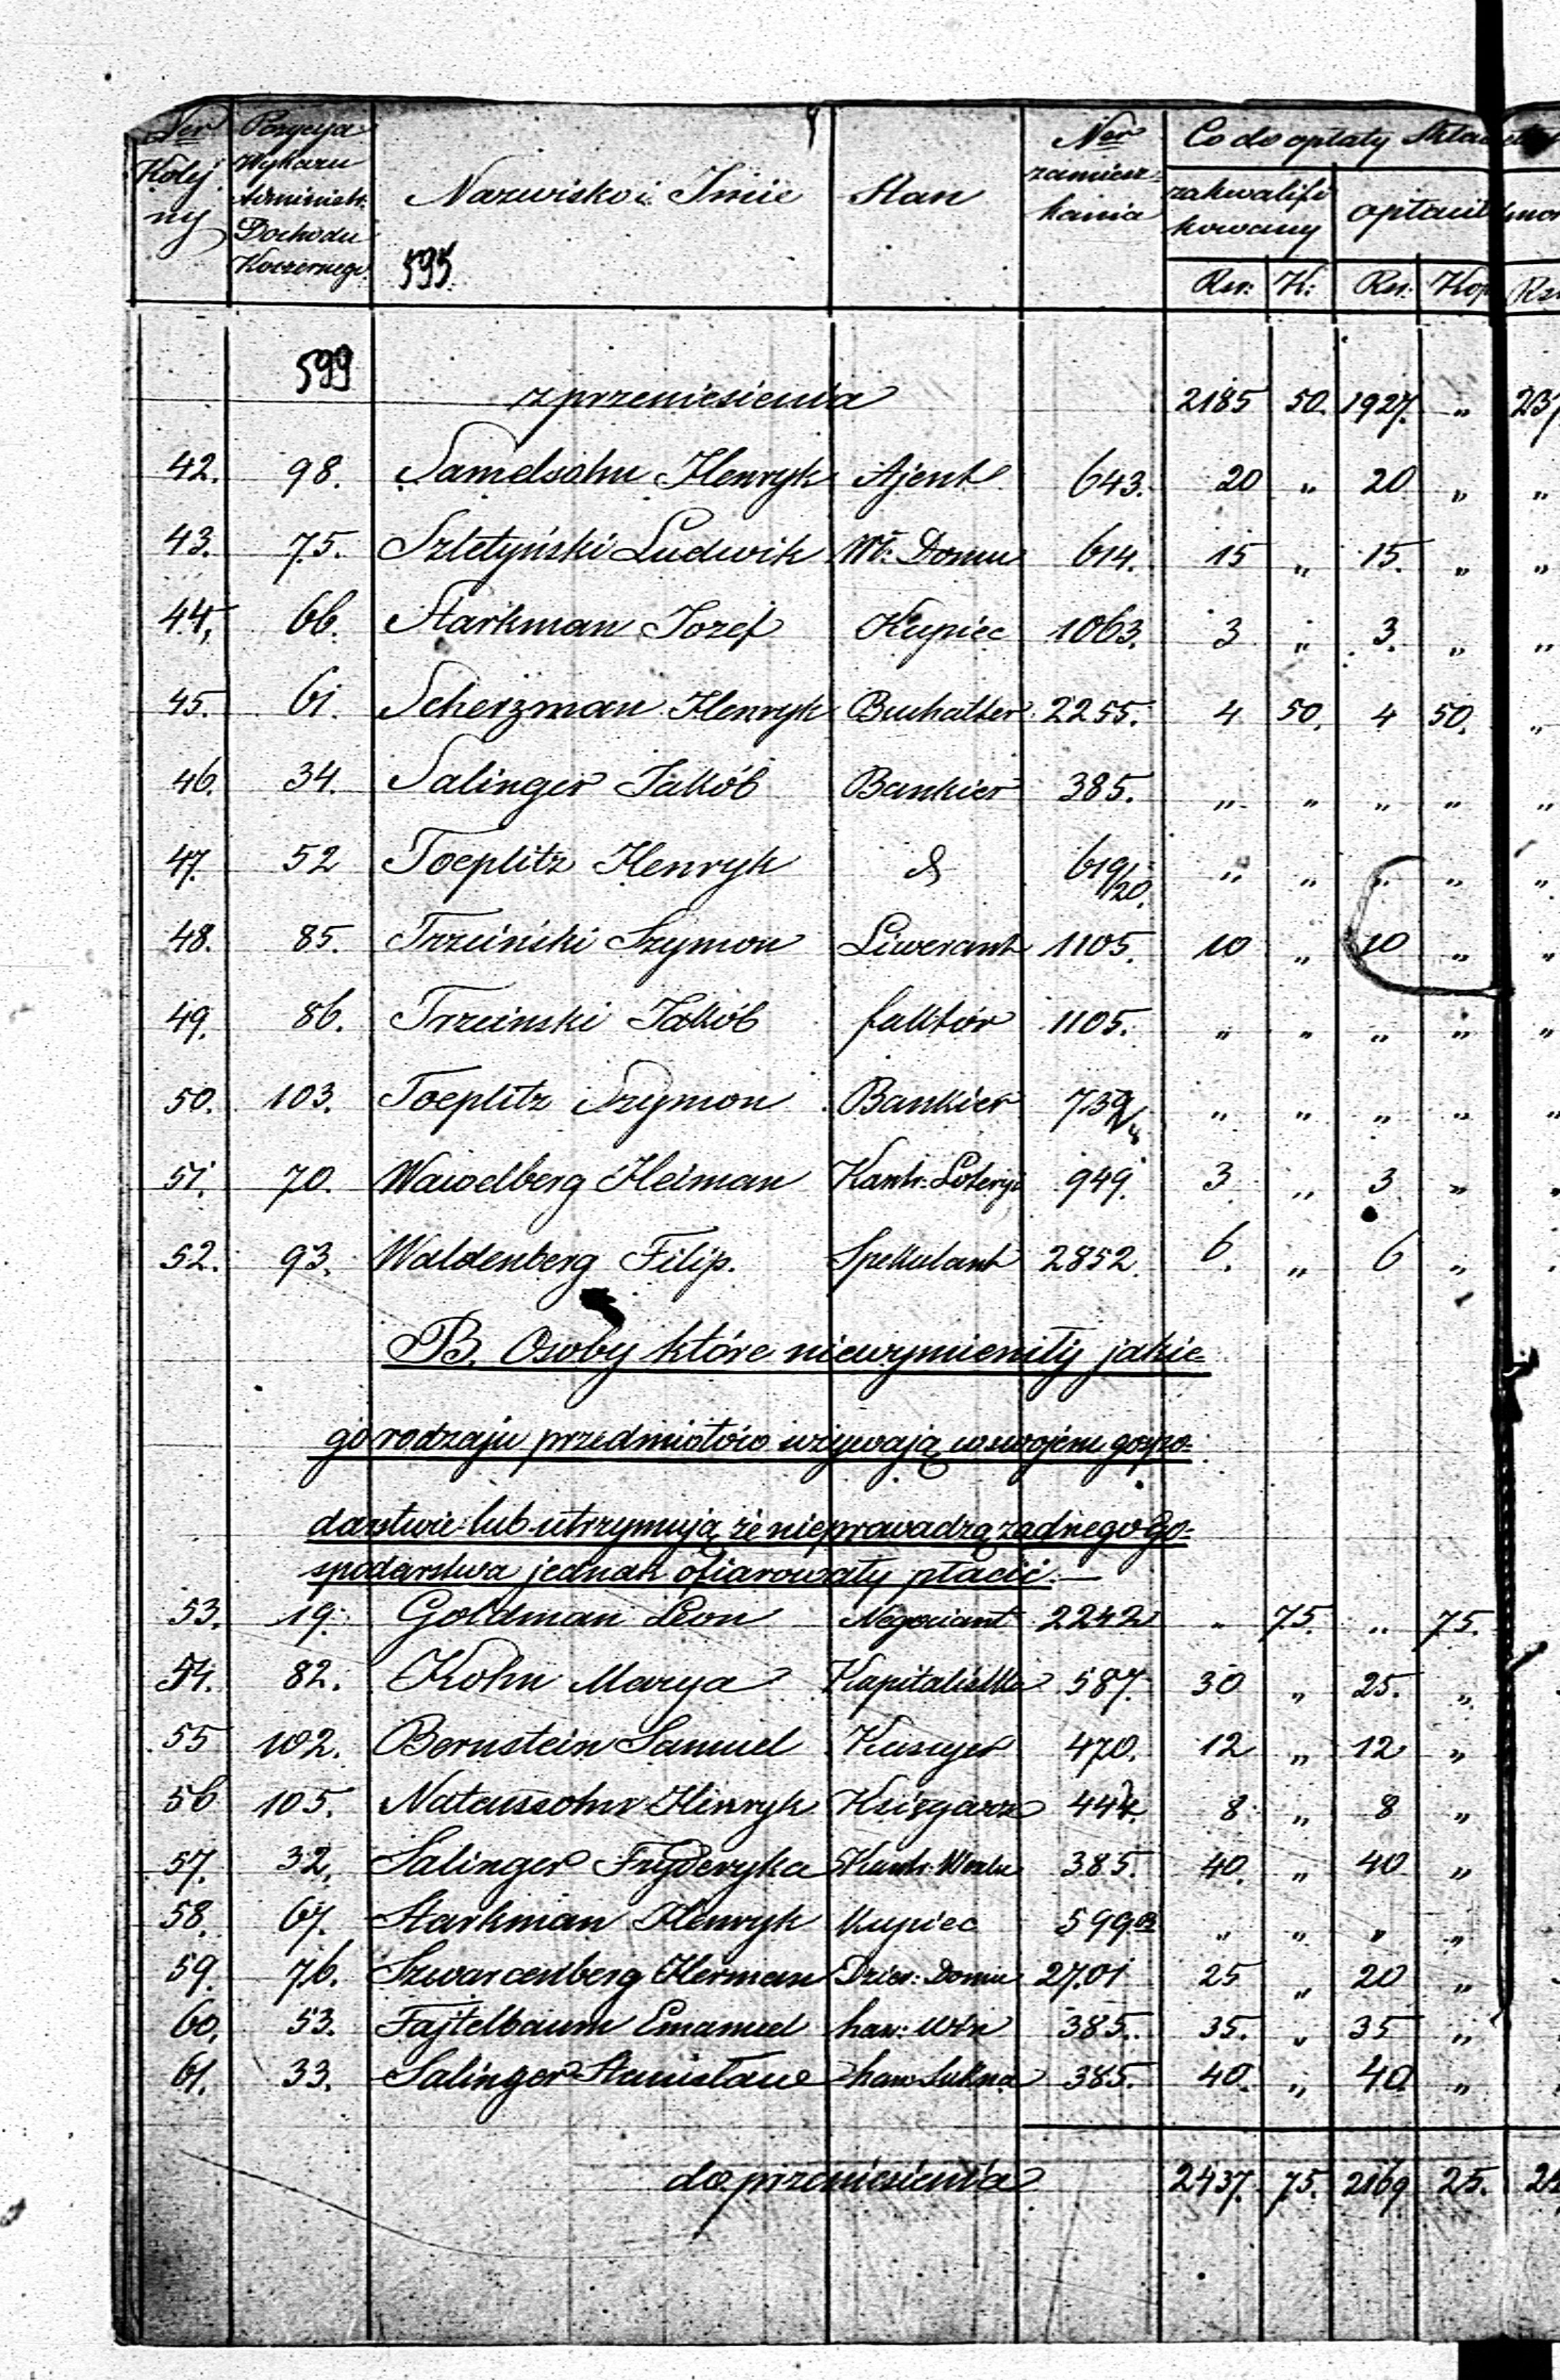 Ner Kolej ny | Pozycya Wykazu Administr: Dochodu Koszernego | Nazwisko i Imie | Stan | Ner zamiesz- kania | Co do opłaty Składki
zakwalifi kowany | opłacił
595. | Rsr: | K: | Rsr: | Kop
599
z przeniesienia | 2185 | 50. | 1927. | „ | 237
42. | 98. | Samelsohn Henryk | Ajent | 643. | 20 | „ | 20 | „ | „
43. | 75. | Szletyński Ludwik | Wł: Domu | 614. | 15 | „ | 15. | „ | „
44. | 66. | Starkman Jozef | Kupiec | 1063. | 3 | „ | 3. | „ | „
45. | 61. | Scherzman Henryk | Buchalter | 2255. | 4 | 50. | 4 | 50. | „
46. | 34. | Salinger Jakób | Bankier | 385. | „ | „ | „ | „ | „
47. | 52 | Toeplitz Henryk | d | 619/20. | „ | „ | „ | „ | „
48. | 85. | Trzciński Szymon | Liwerant | 1105. | 10 | „ | 10 | „ | „
49. | 86. | Trzcinski Jakób | faktór | 1105. | „ | „ | „ | „ | „
50. | 103. | Toeplitz Szymon | Bankier | 739/ | „ | „ | „ | „ | „
51. | 70. | Wawelberg Heiman | Kantr: Loteryi | 949. | 3 | „ | 3 | „ | „
52. | 93. | Waldenberg Filip. | Spekulant | 2852. | 6. | „ | 6 | „
B. Osoby które niewymieniły jakie-
go rodzaju przedmiotów używają w swojem gospo-
darstwie lub utrzymują że nieprowadzą żadnego Go-
spodarstwa jednak ofiarowały płacić.—
53. | 19. | Goldman Leon | Negociant | 2242 | „ | 75. | „ | 75.
54. | 82. | Kohn Marya | Kapitalistka | 587. | 30 | „ | 25. | „
55 | 102. | Bernstein Samuel | Kassyer | 470. | 12 | „ | 12 | „
56 | 105. | Natanssohn Henryk | Księgarz | 447. | 8 | „ | 8 | „
57. | 32. | Salinger Fryderyka | Kantr: Wexlu | 385. | 40. | „ | 40 | „
58. | 67. | Starkman Henryk | Kupiec | 599 | „ | „ | „ | „
59. | 76. | Szwarcenberg Herman | Dzier: Domu | 2701 | 25 | „ | 20 | „
60. | 53. | Fajtelbaum Emanuel | han: Win | 385. | 35. | „ | 35 | „
61. | 33. | Salinger Stanisław | han: Sukna | 385. | 40. | „ | 40 | „
do przeniesienia | 2437. | 75. | 2169 | 25.